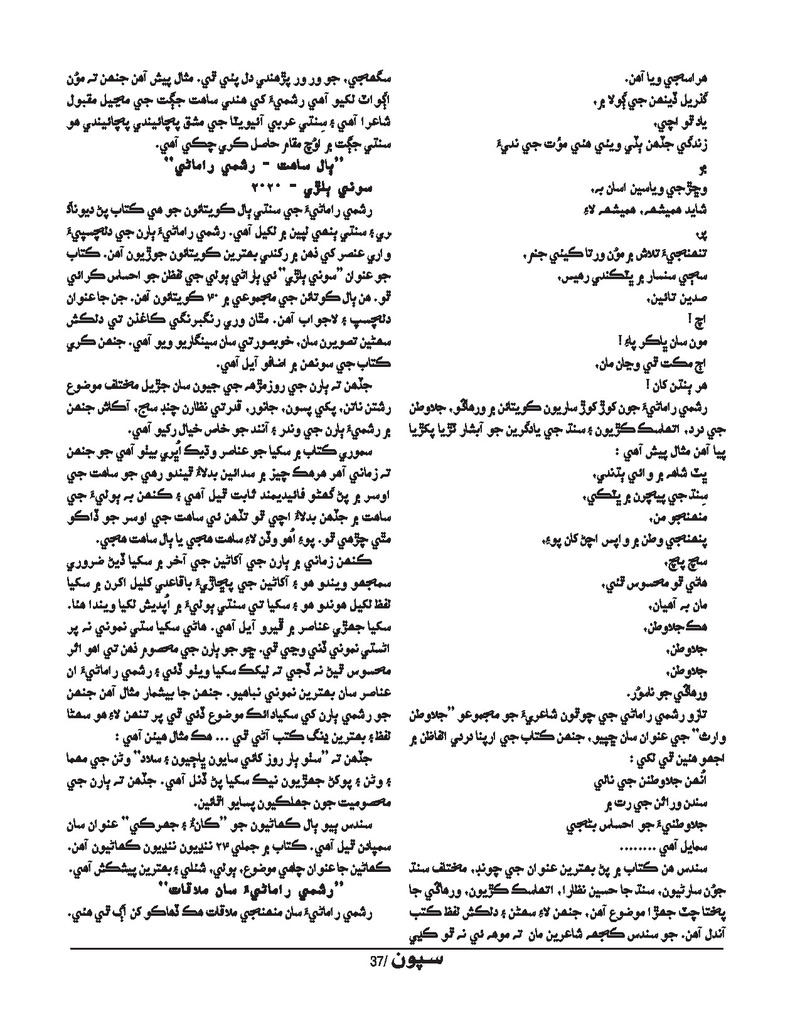 هراسجي ويا آهن.
گذريل ڏينهن جي ڳولا ۾،
ياد ٿو اچي،
زندگي جڏهن ٻُڏي ويئي هئي موُت جي نديءَ
۾
وڇڙجي وياسين اسان به،
شايد هميشهه، هميشهه لاءِ
پر،
تنهنجيءَ تلاش ۾ موُن ورتا ڪيئي جنم،
سڄي سنسار ۾ ڀٽڪندي رهيس،
صدين تائين،
اڄ !
مون سان ڀاڪر پاءِ !
اڄ مڪت ٿي وڃان مان،
هر ٻنڌن کان !
رشمي راماڻيءَ جون کوڙ کوڙ ساريون ڪويتائن ۾ ورهاڱو، جلاوطن
جي درد، اتهاسڪ ڪڙيون ۽ سنڌ جي يادگرين جو آبشار ٿڙيا پکڙيا
پيا آهن مثال پيش آهي :
ڀٽ شاهه ۾ وائي ٻڌندي،
سِنڌ جي پيچرن ۾ ڀٽڪي،
منهنجو من،
پنهنجي وطن ۾ واپس اچڻ کان پوءِ،
سچ پچ،
هاڻي ٿو محسوس ٿئي،
مان به آهيان،
هڪ جلاوطن،
جلاوطن،
جلاوطن،
ورهاڱي جو ناموُر.
تازو رشمي راماڻي جي چوٿون شاعريءَ جو مجموعو ”جلاوطن
وارث“ جي عنوان سان ڇپيو، جنهن ڪتاب جي ارپنا دردي الفاظن ۾
اجهو هنين ٿي لکي :
اُنهن جلاوطنن جي نالي
سندن وراثن جي رت ۾
جلاوطنيءَ جو احساس بڻجي
سمايل آهي ........
سندس هن ڪتاب ۾ پڻ بهترين عنوان جي چونڊ، مختلف سنڌ
جوُن سارڻيون، سنڌ جا حسين نظارا، اتهاسڪ ڪڙيون، ورهاڱي جا
پختا چٽ جهڙا موضوع آهن، جنهن لاءِ سهڻن ۽ دلڪش لفظ ڪتب
آندل آهن. جو سندس ڪجهه شاعرين مان ته موهه ئي نه ٿو ڪڍي
سگهجي، جو ور ور پڙهندي دل پئي ٿي. مثال پيش آهن جنهن ته موُن
اڳواٽ لکيو آهي رشميءَ کي هندي ساهت جڳت جي مڃيل مقبول
شاعرا آهي ۽ سِنڌي عربي آئيويٽا جي مشق پچائيندي پچائيندي هو
سنڌي جڳت ۾ اوُچ مقام حاصل ڪري چڪي آهي.
”ٻال ساهت - رشمي راماڻي“
سوني ٻلڙي - ۲۰۲۰
رشمي راماڻيءَ جي سنڌي ٻال ڪويتائون جو هي ڪتاب پڻ ديوناگ
ري ۽ سنڌي ٻنهي لپين ۾ لکيل آهي. رشمي راماڻيءَ ٻارن جي دلچسپيءَ
واري عنصر کي ذهن ۾ رکندي بهترين ڪويتائون جوڙيون آهن. ڪتاب
جو عنوان ”سوني ٻلڙي“ ئي ٻاراڻي ٻولي جي لفظن جو احساس ڪرائي
ٿو. هن ٻال ڪوتائن جي مجموعي ۾ ۴۰ ڪويتائون آهن. جن جا عنوان
دلچسپ ۽ لاجواب آهن. مٿان وري رنگبرنگي ڪاغذن تي دلڪش
سهڻين تصويرن سان، خوبصورتي سان سينگاريو ويو آهي. جنهن ڪري
ڪتاب جي سونهن ۾ اضافو آيل آهي.
جڏهن ته ٻارن جي روزمڙهه جي جيون سان جڙيل مختلف موضوع
رشتن ناتن، پکي پسون، جانور، قدرتي نظارن چنڊ سج، آڪاش جنهن
۾ رشميءَ ٻارن جي وندر ۽ آنند جو خاص خيال رکيو آهي.
سموري ڪتاب ۾ سکيا جو عناصر وڌيڪ اُڀري بيٺو آهي جو جنهن
ته زماني آهر هرهڪ چيز ۾ سدائين بدلاءُ ٿيندو رهي جو ساهت جي
اوسر ۾ پڻ گهڻو فائيديمند ثابت ٿيل آهي ۽ ڪنهن به ٻوليءَ جي
ساهت ۾ جڏهن بدلاءُ اچي ٿو تڏهن ئي ساهت جي اوسر جو ڏاڪو
مٿي چڙهي ٿو. پوءِ اُهو وڏن لاءِ ساهت هجي يا ٻال ساهت هجي.
ڪنهن زماني ۾ ٻارن جي آکاڻين جي آخر ۾ سکيا ڏيڻ ضروري
سمجهو ويندو هو ۽ آکاڻين جي پڇاڙيءَ باقاعدي کليل اکرن ۾ سکيا
لفظ لکيل هوندو هو ۽ سکيا تي سنڌي ٻوليءَ ۾ اُپديش لکيا ويندا هئا.
سکيا جهڙي عناصر ۾ ڦيرو آيل آهي. هاڻي سکيا سڌي نموني نه پر
اڻسڌي نموني ڏني وڃي ٿي. ڇو جو ٻارن جي معصوم ذهن تي اهو اثر
محسوس ٿيڻ نه ڏجي ته ليکڪ سکيا ويٺو ڏئي ۽ رشمي راماڻيءَ ان
عناصر سان بهترين نموني نباهيو. جنهن جا بيشمار مثال آهن جنهن
جو رشمي ٻارن کي سکيادائڪ موضوع ڏئي ٿي پر تنهن لاءِ هو سهڻا
لفظ ۽ بهترين ڍنگ ڪتب آڻي ٿي ... هڪ مثال هيئن آهي :
جڏهن ته ”سٺو ٻار روز کائي سايون ڀاڄيون ۽ سلاد“ وڻن جي مهما
۽ وڻن ۽ پوکڻ جهڙيون نيڪ سکيا پڻ ڏنل آهي. جڏهن ته ٻارن جي
معصوميت جون جهلڪيون پسايو اٿائين.
سندس ٻيو ٻال ڪهاڻيون جو ”ڪانءُ ۽ جهرڪي“ عنوان سان
سمپادن ٿيل آهي. ڪتاب ۾ جملي ۲۴ ننڍيون ننڍيون ڪهاڻيون آهن.
ڪهاڻين جا عنوان چاهي موضوع، ٻولي، شئلي ۽ بهترين پيشڪش آهي.
”رشمي راماڻيءَ سان ملاقات“
رشمي راماڻيءَ سان منهنجي ملاقات هڪ ڏهاڪو کن اڳ ٿي هئي.
سپون /37